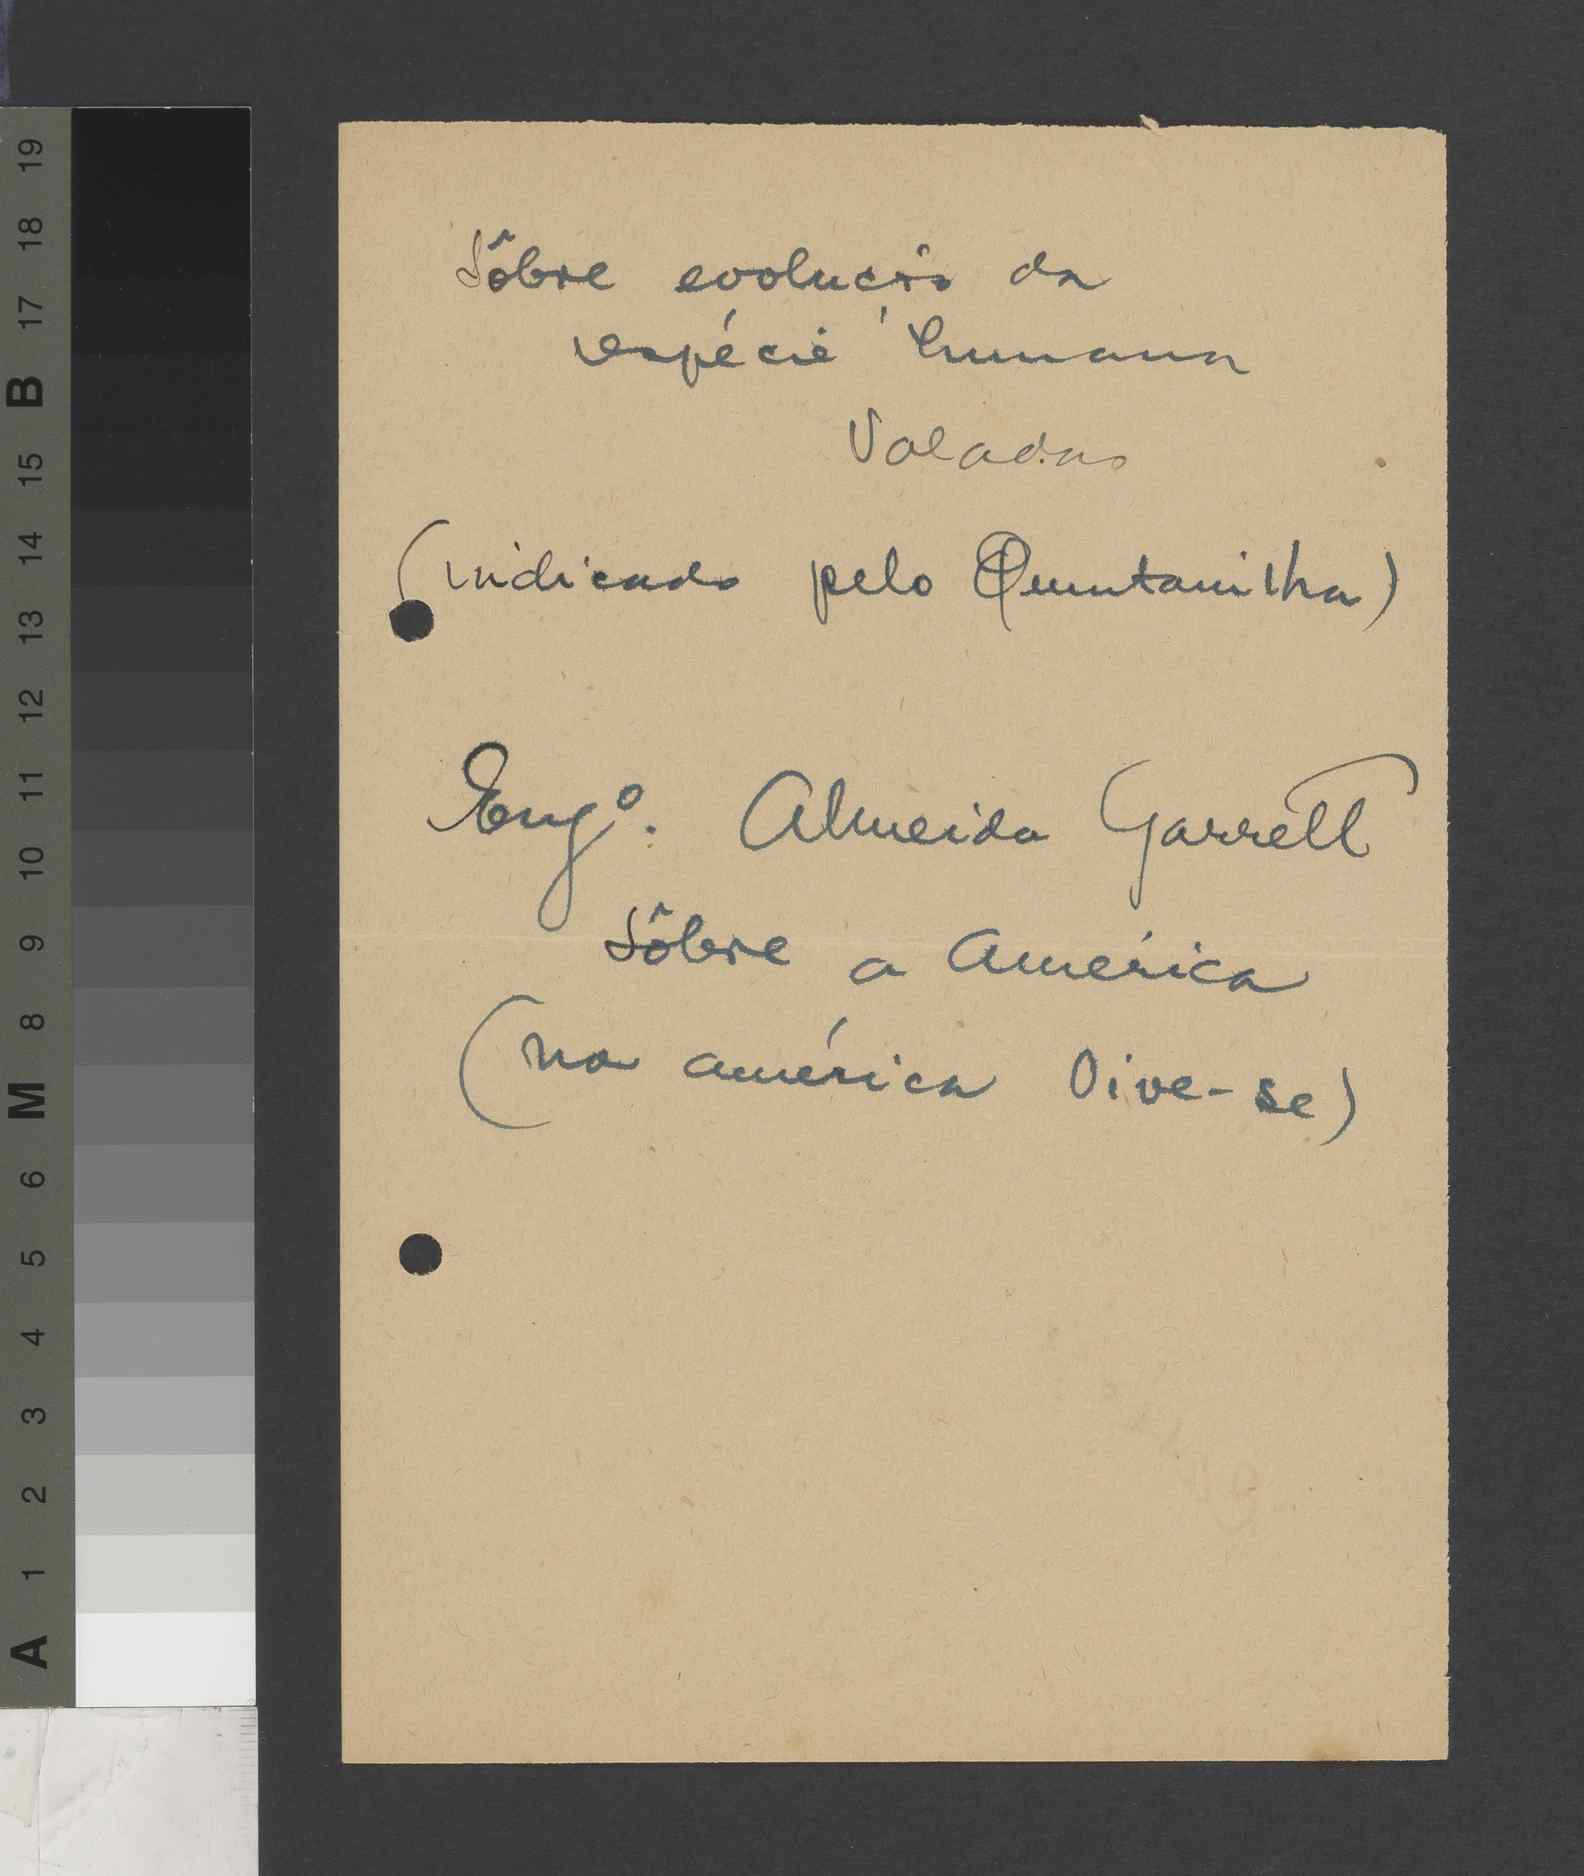 Sôbre evolução da
espécie humana
Valadas
(indicado pelo Quintanilha)
Engº. Almeida Garrett
Sôbre a América
(na américa Vive-se)
19
18
17
B
15
14
13
12
11
10
9
8
M
6
5
4
3
2
1
A